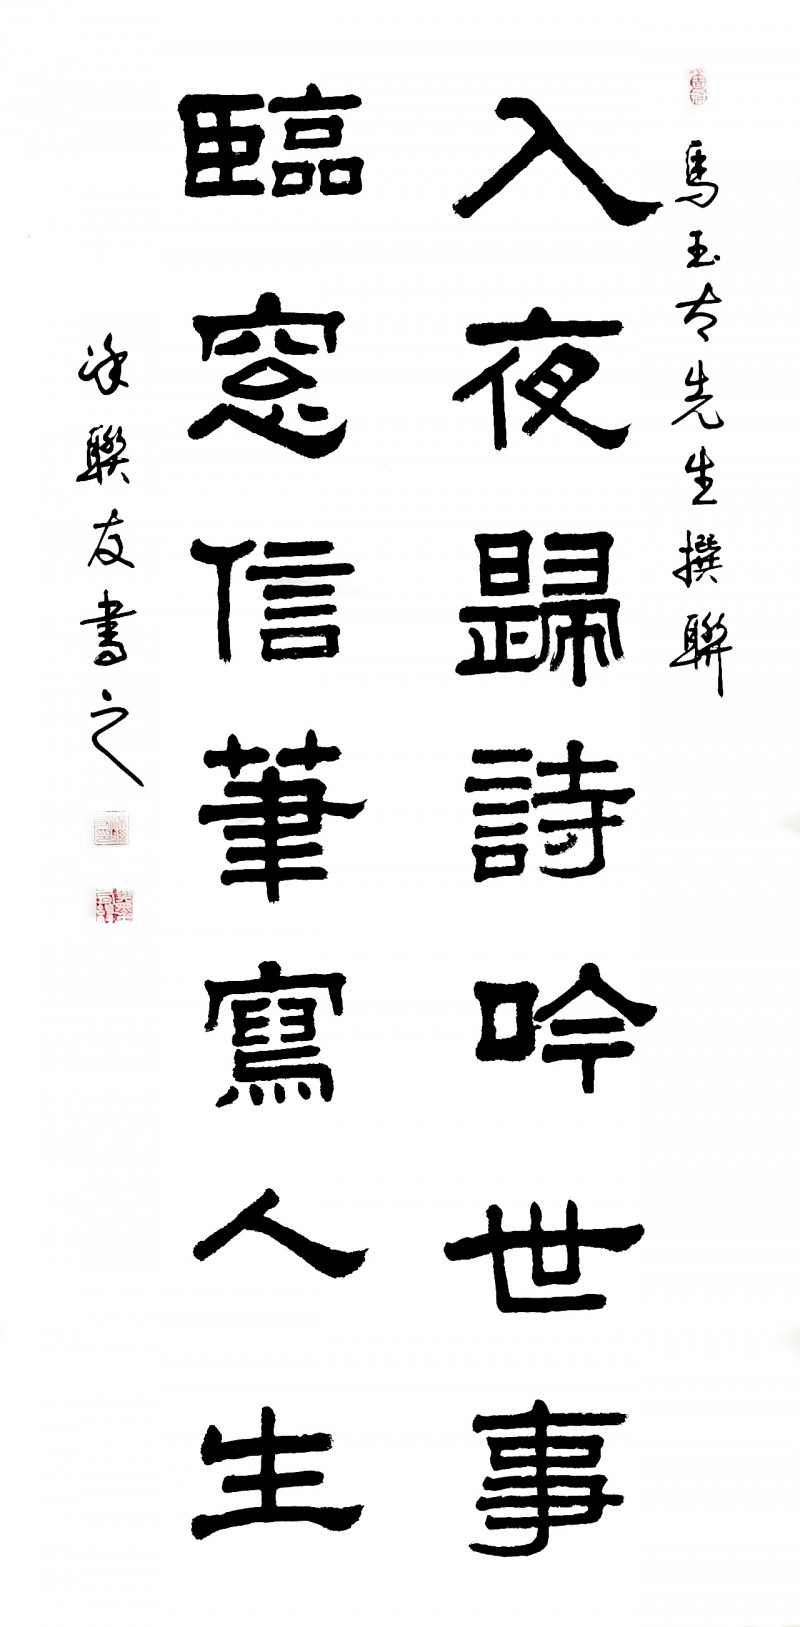 馬玉太先生撰聯
入夜歸詩吟世事
臨窓信筆寫人生
聯友書之